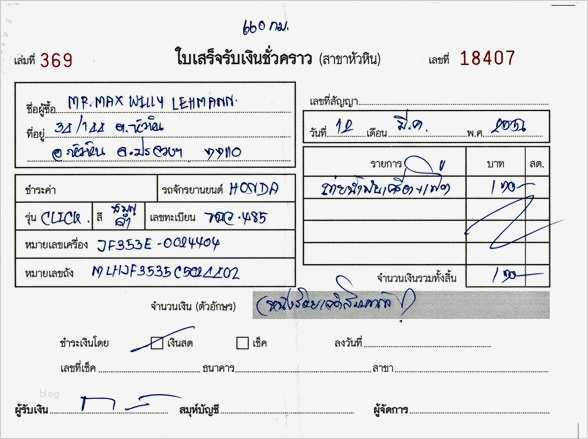 660 กม.
เล่มที่ 369 ใบเสร็จรับเงินชั่วคราว (สาขาหัวหิน) เลขที่ 18407
ชื่อผู้ซื้อ MR. MAX WILLY LEHMANN
เลขที่สัญญา
ที่อยู่ 34/144 ต.หัวหิน
วันที่ 12 เดือน มี.ค. พ.ศ.
อ.หัวหิน จ.ประจวบฯ 77110
รายการ บาท สต.
ชำระค่า รถจักรยานยนต์ HONDA
รุ่น CLICK สี ดำ เลขทะเบียน 485
หมายเลขเครื่อง JF353E-0024404
หมายเลขถัง
จำนวนเงินรวมทั้งสิ้น
จำนวนเงิน (ตัวอักษร)
ชำระเงินโดย เงินสด เช็ค ลงวันที่
เลขที่เช็ค ธนาคาร สาขา
blog
ผู้รับเงิน สมุห์บัญชี ผู้จัดการ